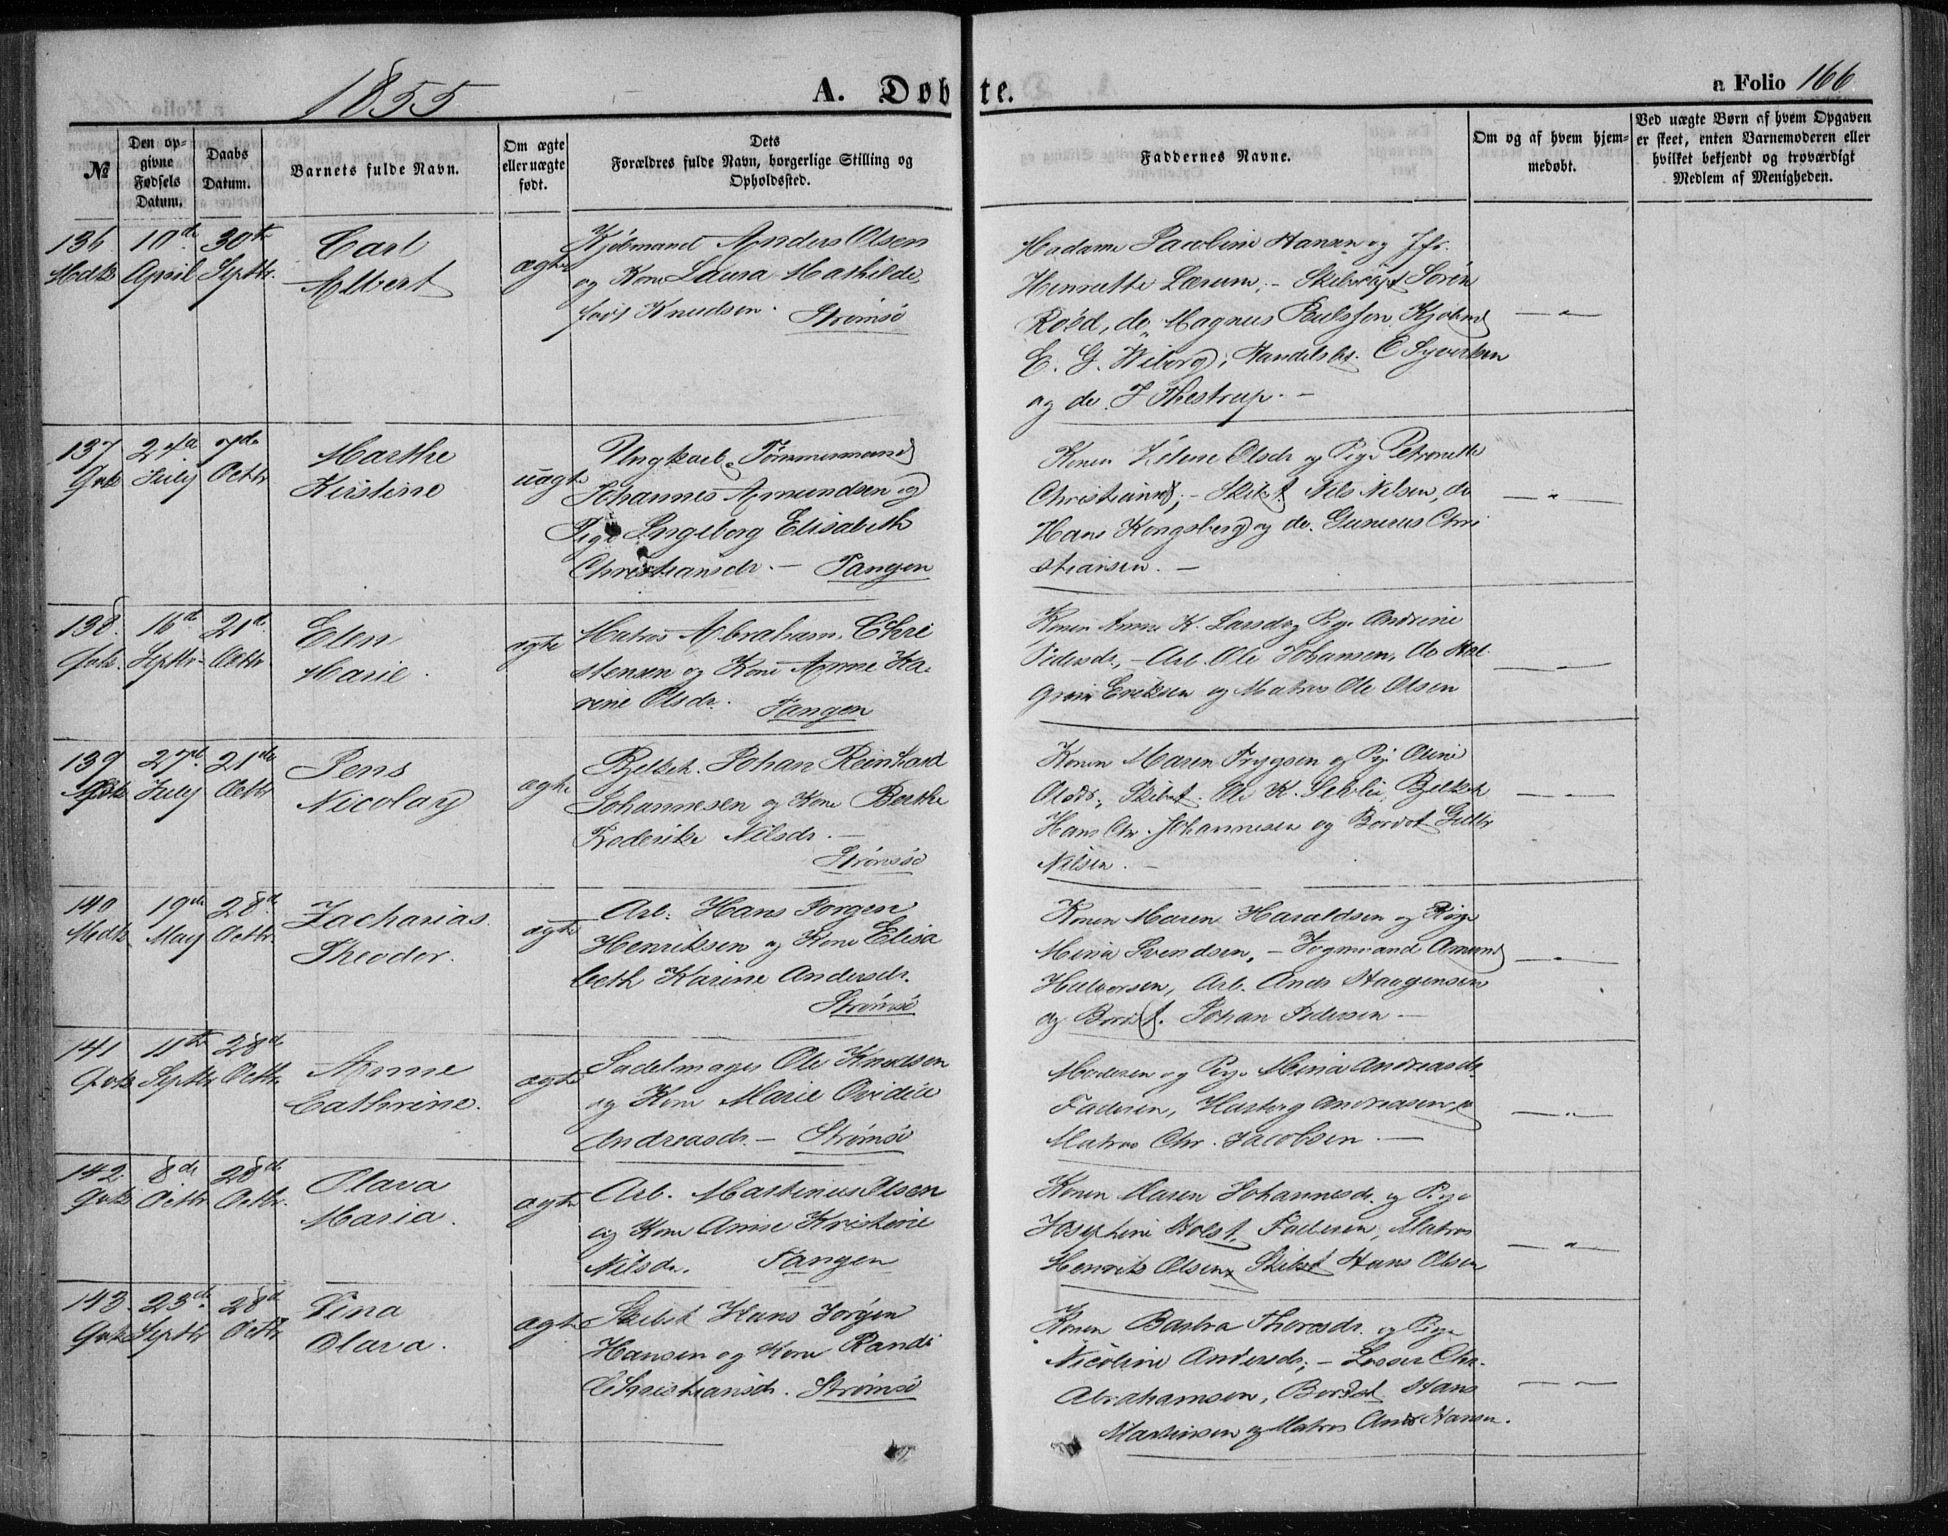 1855
A. Døbte.
a Folio 166
№
Den opgivne Fødsels Datum.
Daabs Datum.
Barnets fulde Navn.
Om ægte eller uægte født.
Dets
Forældres fulde Navn, borgerlige Stilling og
Opholdssted.
Faddernes Navne.
Om og af hvem hjemmedøbt.
Ved uægte Børn af hvem Opgaven
er skeet, enten Barnemoderen eller
hvilket bekjendt og troværdigt
Medlem af Menigheden.
136 10de 30te Carl
April Septbr. Albert
ægte
Kjøbmand Anders Olsen
og Kone Laura Mathilde
født Knudsen. Strømsø
Madame Jacobine Hansen og Jfr.
Henriette Lærum, - Skibscapt Sören
Röed, do Magnus Paulsson, Kjøbmd
E. G. Wiborg, Handelsbr. C Syvertsen
og do. J Thestrup. -
137 24de 7de Marthe
July Octbr Kirstine
uægte
Ungkarl Tömmermand
Johannes Amundsen og
Pige Ingeborg Elisabeth
Christiansdr. - Tangen
Konen Helene Olsdr og Pige Petronelle
Christiansd; - Skibst. Nils Nilsen, do
Hans Kongsberg og do. Gunerus Chri
stiansen. -
138. 16de 21de Elen
Septbr. Octbr. Marie.
ægte
Matros Abraham Chri
stensen og Kone Anne Ka-
rine Olsdr. Tangen
Konen Anne K. Larsd og Pige Andrine
Pedersdr, - Arb. Ole Johansen, do Hal
Eriksen og Matros Ole Olsen
139 27de 21de Jens
July Octbr Nicolay
ægte
Johan Reinhard
Johannesen og Kone Berthe
Frederike Nilsdr. -
Strømsø
Konen Maren Trygsen og Pige Oline
Olsdr, Skibst. Ole K.
Hans Chr. Johannesen og Bordst
Nilsen. -
140 19de 28de Zacharias
May Octbr Theodor.
ægte
Arb. Hans Jørgen
Henriksen og Kone Elisa
beth Karine Andersdr.
Strømsø
Konen Maren Haraldsen og Pige
Mina Svendsen, - Vognmand Amund
Halvorsen, Arb. Ands Haagensen
og Bordst. Johan Pedersen -
141 11te 28de Anne
Septbr Octbr. Cathrine.
ægte
Sadelmager Ole Knudsen
og Kone Marie Ovidia
Andreasdr. - Strømsø
Moderen og Pige Mina Andreasdr.
Faderen, Andreasen, og
Matros Chr. Jacobsen. -
142 8de 28de Olava
Octbr Octbr. Maria.
ægte
Arb. Martinus Olsen
og Kone Anne Kristine
Nilsdr. Tangen
Konen Maren Johannesdr. og Pige
Josephine Holst, Faderen, Matros
Henrik Olsen, Skibst Hans Olsen
143. 23de 28de Tina
Septbr Octbr. Olava.
ægte
Skibst Hans Jørgen
Hansen og Kone Randi
Christiansdr. Strømsø
Konen Barbra Thoresdr. og Pige
Nicoline Andersdr; - Losser Chr.
Abrahamsen, Bordst Hans
Martinsen og Matros Ands Hansen.